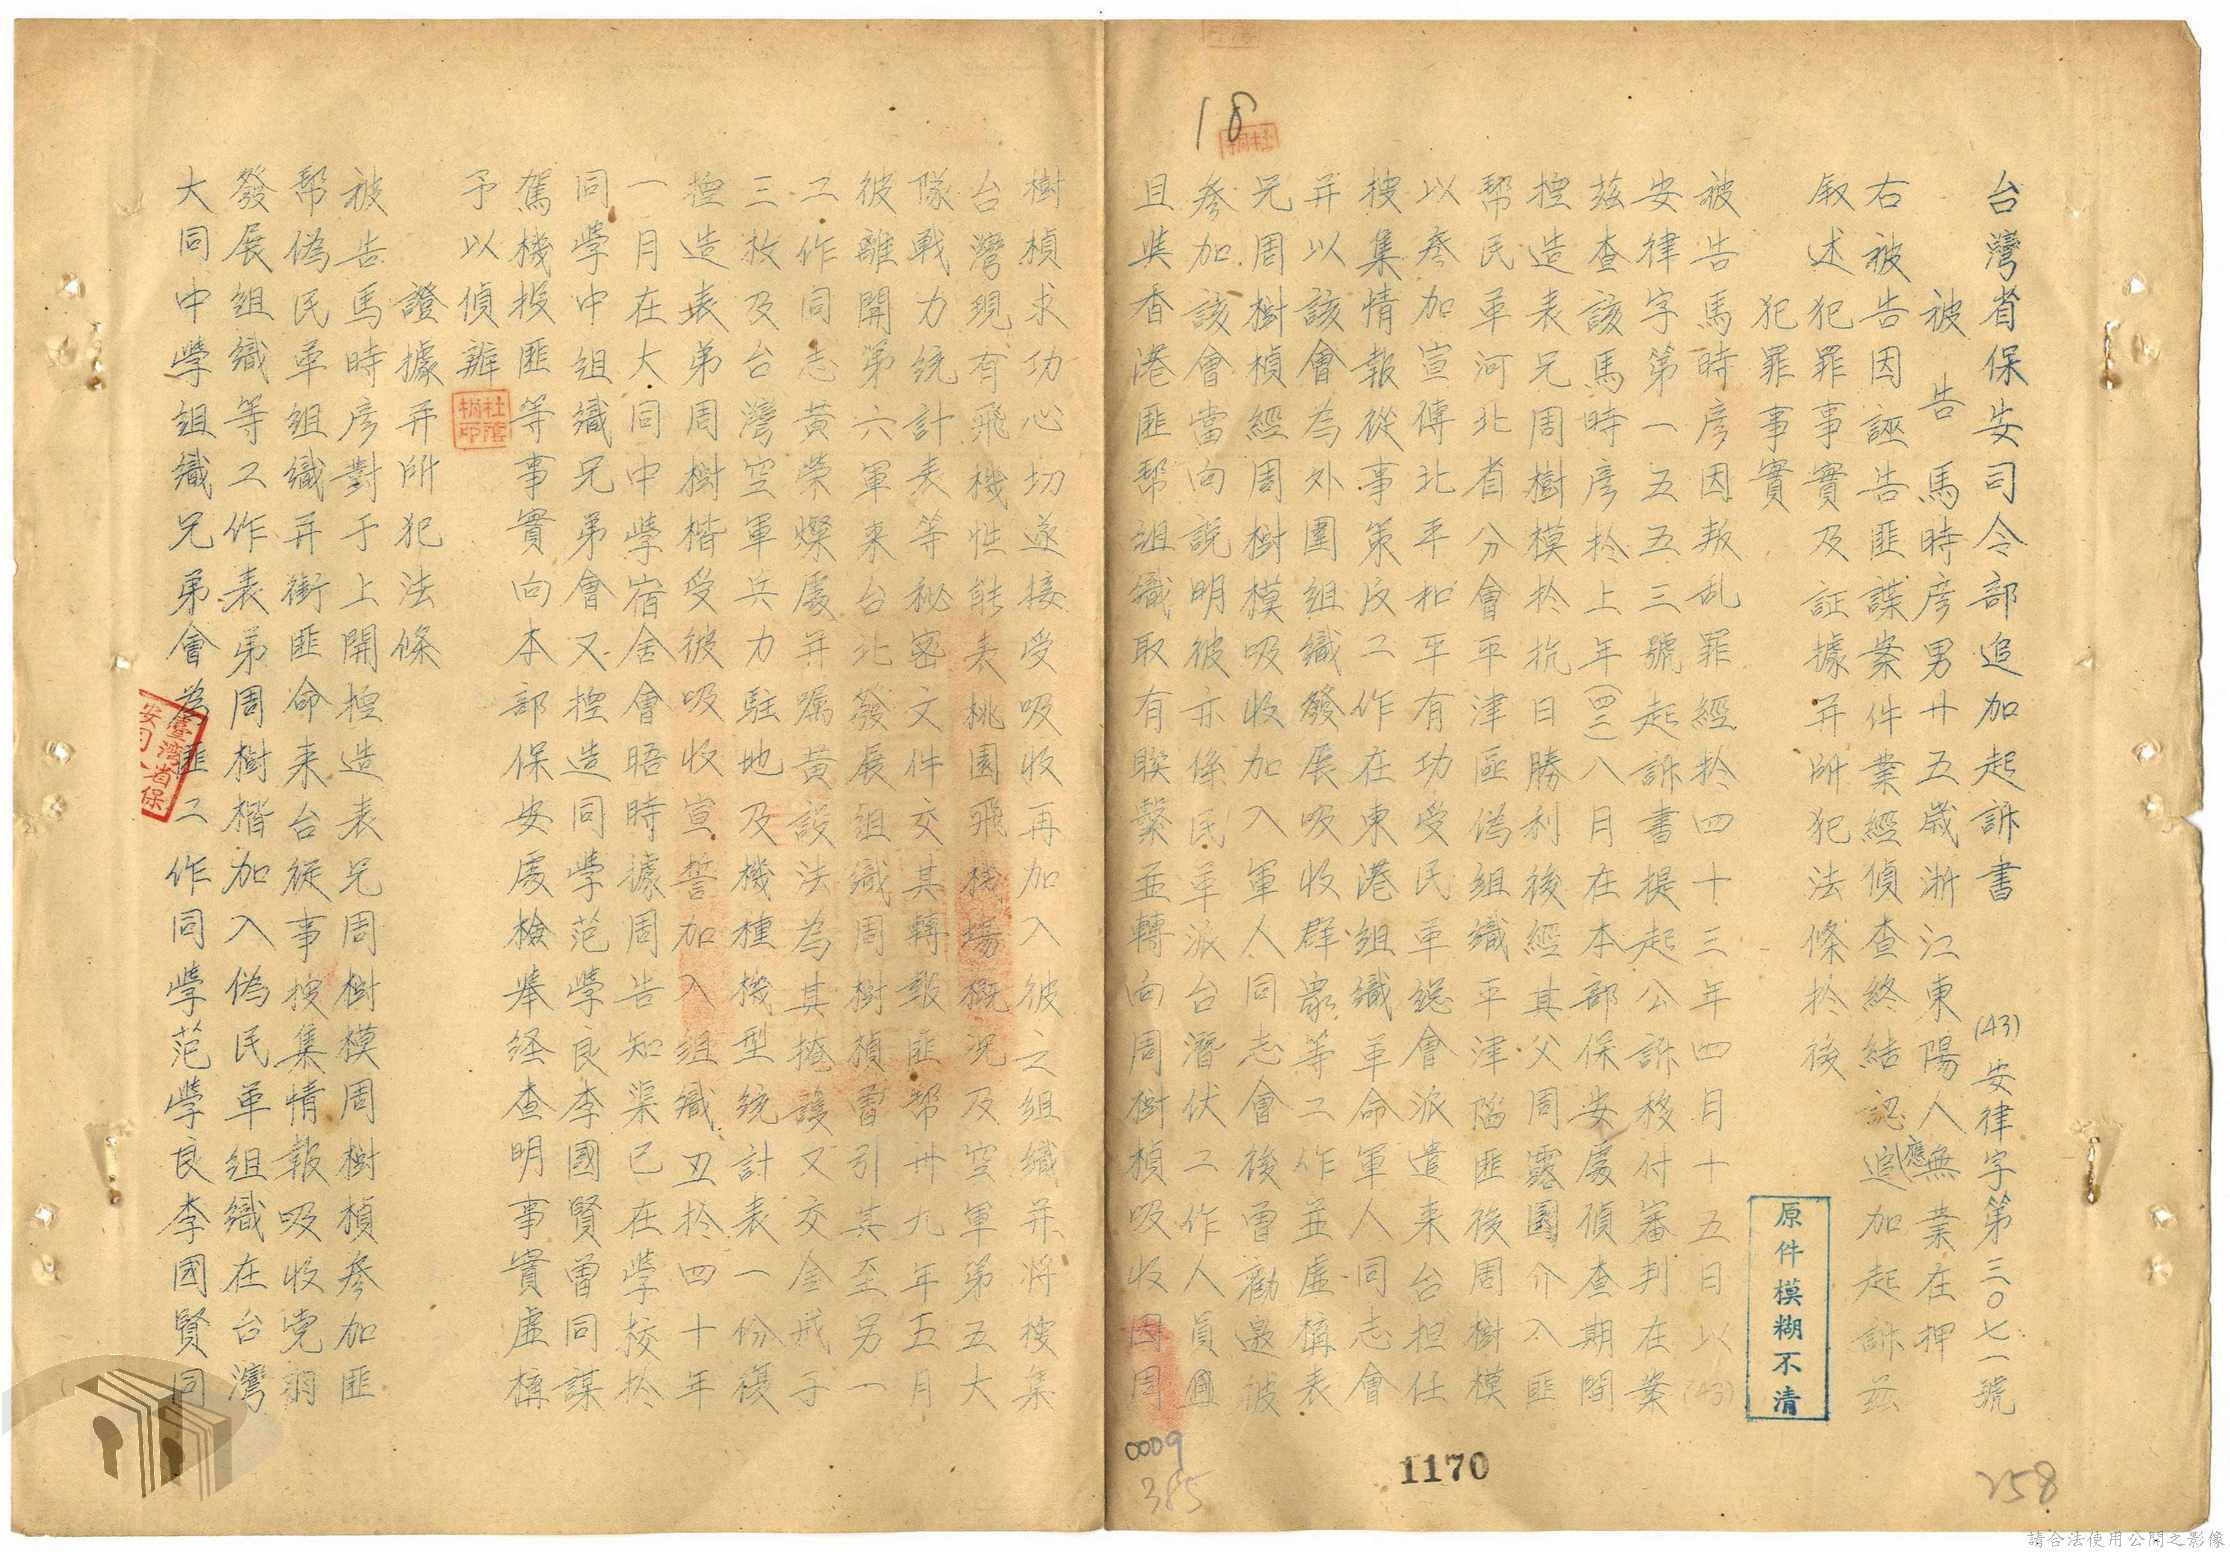 台灣省保安司令部追加起訴書 (43)安律字第三〇七一號
被告 馬時彦男廿五歲浙江東陽人無業在押
右被告因誣告匪諜案件業經偵查終結認應追加起訴茲
敘述犯罪事實及証據并所犯法條於後
犯罪事實
被告馬時彦因叛乱罪經於四十三年四月十五日以(43)
安律字第一五五三號起訴書提起公訴移付審判在案
茲查該馬時彦於上年(四二)八月在本部保安處偵查期間
揑造表兄周樹模於抗日勝利後經其父周露園介入匪
幇民革河北省分會平津區偽組織平津陷匪後周樹模
以參加宣傳北平和平有功受民革總會派遣来台担任
搜集情報從事策反工作在東港組織革命軍人同志會
并以該會為外圍組織發展吸收群眾等工作並虛構表
兄周樹楨經周樹模吸收加入軍人同志會後曾勸邀彼
參加該會當向說明彼亦係民革派台潛伏工作人員
且與香港匪幇組織取有聯繫並轉向周樹楨吸收因周
樹楨求功心切遂接受吸收再加入彼之組織并將搜集
台灣現有飛機性能表桃園飛機場概況及空軍第五大
隊戰力統計表等秘密文件交其轉報匪幇卅九年五月
彼離開第六軍来台北發展組織周樹楨曾引其至另一
工作同志黃榮燦處并嘱黃設法為其掩護又交金戒子
三枚及台灣空軍兵力駐地及機種機型統計表一份復
揑造表弟周樹楷受彼吸收宣誓加入組織丑於四十年
一月在大同中學宿舍會晤時據周告知渠已在學校於
同學中組織兄弟會又揑造同學范學良李國賢曾同謀
駕機投匪等事實向本部保安處檢舉経查明事實虛構
予以偵辦
證據并所犯法條
被告馬時彦對于上開揑造表兄周樹模周樹楨參加匪
幇偽民革組織并銜匪命来台從事搜集情報吸收党羽
發展組織等工作表弟周樹楷加入偽民革組織在台灣
大同中學組織兄弟會為匪工作同學范學良李國賢同
原件模糊不清
18
0009
385
1170
258
臺灣省保
安司
請合法使用公開之影像